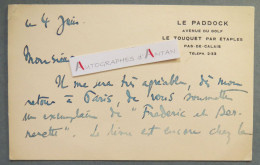 LE PADDOCK
AVENUE DU GOLF
LE TOUQUET PAR ETAPLES
PAS-DE-CALAIS
TÉLÉPH. 3.33
ce 4 Juin.
Monsieur
AUTOGRAPHES D'ANTAN
Il me sera très agréable, dès mon
retour à Paris, de vous soumettre
un exemplaire de "Frédéric et Ber-
nerette". Le dern est encore chez le